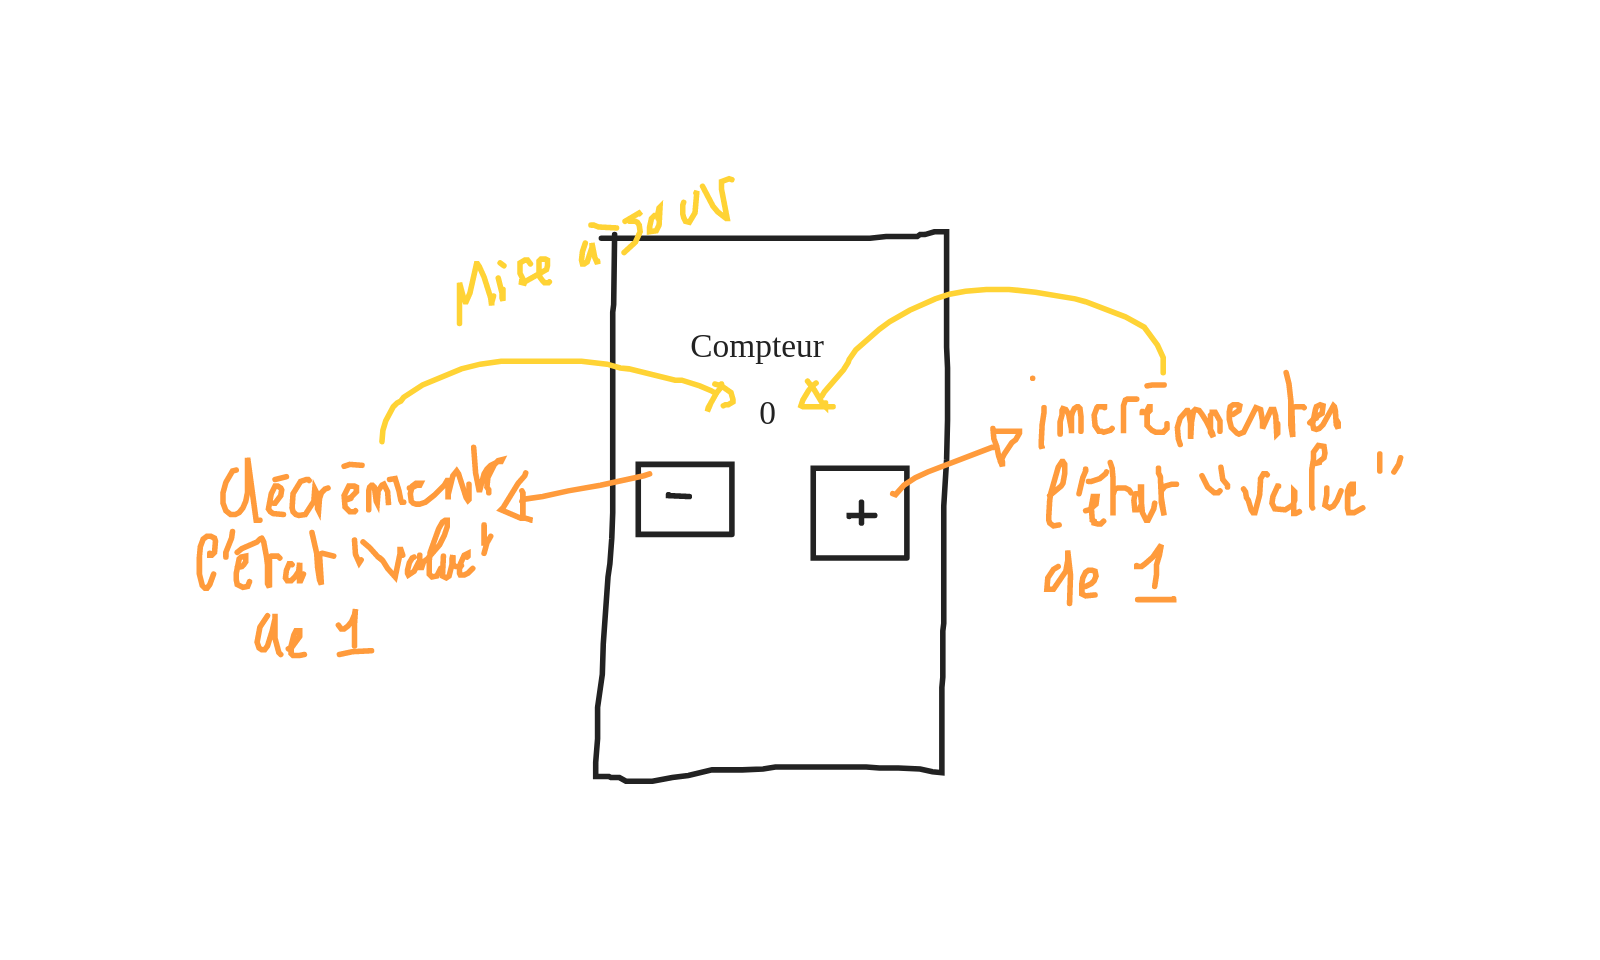 Mise à jour
Compteur
0
-
+
décrémenter
l'état "value"
de 1
incrémenter
l'état "value"
de 1